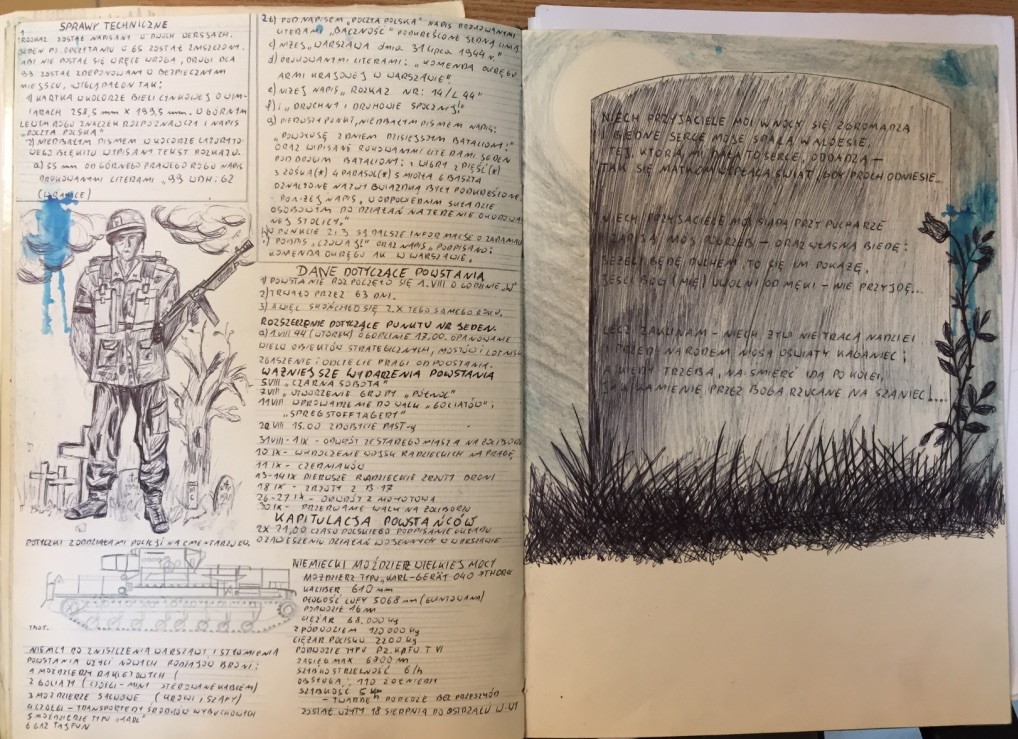 SPRAWY TECHNICZNE
ROZKAZ ZOSTAŁ NAPISANY W DWÓCH WERSJACH.
JEDEN PO ODCZYTANIU O GS ZOSTAŁ ZNISZCZONY.
ABY NIE DOSTAŁ SIĘ W RĘCE WROGA, DRUGI DLA
ZOSTAŁ ZDEPONOWANY W BEZPIECZNYM
MIEJSCU. WYGLĄDAŁ ON TAK:
1) KARTKA W KOLORZE BIELI CYNKOWEJ O WYM-
IARACH 258,5 mm X 199,5 mm. W GÓRNYM
LEWYM ROGU ZNACZEK ROZPOZNAWCZY I NAPIS
"POCZTA POLSKA"
2) NIEDBAŁYM PISMEM W KOLORZE
BŁĘKITU WPISANY TEKST ROZKAZU.
a) 55 mm OD GÓRNEGO PRAWEGO ROGU NAPIS
DRUKOWANYMI LITERAMI
26) POD NAPISEM "POCZTA POLSKA" NAPIS DRUKOWANYMI
LITERAMI "BACZNOŚĆ" PODKREŚLONE JEDNĄ LINIĄ
c) NIŻEJ "WARSZAWA dnia 31 lipca 1944 r."
d) DRUKOWANYMI LITERAMI: "KOMENDA OKRĘGU
ARMI KRAJOWEJ W WARSZAWIE"
e) NIŻEJ NAPIS "ROZKAZ NR: 14/L 44"
f) "DRUCHNY I DRUHOWIE SPOCZNIJ!"
g) PIERWSZY PUNKT, NIEDBAŁYM PISMEM NAPIS:
"POWOŁUJĘ Z DNIEM DZISIEJSZYM BATALIONY:"
ORAZ WPISANE DRUKOWANYMI LITERAMI JEDEN
POD DRUGIM BATALIONY: 1 WIGRY 2 PIĘŚĆ(*)
3 ZOŚKA(*) 4 PARASOL(*) 5 MIOTŁA 6 BASZTA
OZNACZONE NAZWY GWIAZDKĄ BYŁY PODKREŚLONE
PONIŻEJ NAPIS "W ODPOWIEDNIM SKŁADZIE
OSOBOWYM DO DZIAŁAŃ NA TERENIE OKUPOWA-
NEJ STOLICY."
W PUNKCIE 2 i 3 SĄ DALSZE INFORMACJE O ZADANIU
PODPIS "CZUWAJ" ORAZ NAPIS "PODPISANO:
KOMENDA OKRĘGU AK W WARSZAWIE.
DANE DOTYCZĄCE POWSTANIA
1) POWSTANIE ROZPOCZĘTO SIĘ 1.VIII O GODZINIE "W"
2) TRWAŁO PRZEZ 63 DNI.
3) A WIĘC SKOŃCZYŁO SIĘ 2.X TEGO SAMEGO ROKU.
ROZSZERZENIE DOTYCZĄCE PUNKTU NR JEDEN.
a) 1.VIII.44 (WTOREK) O GODZINIE 17.00. OPANOWANIE
WIELU OBIEKTÓW STRATEGICZNYCH, MOSTÓW I LOTNISK
ZGASZENIE I ODCIĘCIE PRAGI OD POWSTANIA.
WAŻNIEJSZE WYDARZENIA POWSTANIA
5VIII "CZARNA SOBOTA"
7VIII "UTWORZENIE GRUPY "PÓŁNOC"
11VIII WPROWADZENIE DO WALK "GOLIATÓW",
20 VIII 15.00 ZDOBYCIE PAST-y
31VIII - 1IX - ODWRÓT ZE STAREGO MIASTA NA ŻOLIBORZ
10 IX - WKROCZENIE WOJSK RADZIECKICH NA PRAGĘ
11 IX - CZERNIAKÓW
13-14IX PIERWSZE RADZIECKIE ZRZUTY BRONI
18 IX - ZRZUTY Z B-17
26-27 IX - ODWRÓT Z MOKOTOWA
30IX - PRZERWANIE WALK NA ŻOLIBORZU
KAPITULACJA POWSTAŃCÓW
2X 21,00 CZASU POLSKIEGO PODPISANIE UKŁADU
O ZAWIESZENIU DZIAŁAŃ WOJENNYCH W WARSZAWIE
POTYCZKI Z ODDZIAŁAMI POLICJI NA CMENTARZU EW.
NIEMCY DO ZNISZCZENIA WARSZAWY I STŁUMIENIA
POWSTANIA UŻYLI NOWYCH RODZAJÓW BRONI:
1 MOŹDZIERZY RAKIETOWYCH (
2 GOLIATY (CZOŁGI-MINY STEROWANE KABLEM)
3 MOŹDZIERZE SALWOWE (KROWY I SZAFY)
4 CZOŁGI - TRANSPORTERY ŚRODKÓW WYBUCHOWYCH
5 MOŹDZIERZE TYPU "KARL"
6 GAZ TAJFUN
NIEMIECKI MOŹDZIERZ WIELKIEJ MOCY
MOŹDZIERZ TYPU "KARL-GERÄT 040 "THOR"
KALIBER 610 mm
DŁUGOŚĆ LUFY 5068 mm (GWINTOWANA)
PODWOZIE 16 m
CIĘŻAR 68.000 kg
Z PODWOZIEM 120 000 kg
CIĘŻAR POCISKU 2200 kg
PODWOZIE TYPU PZ. KPFW. T VI
ZASIĘG MAX 6800 m
SZYBKOSTRZELNOŚĆ 6/h
OBSŁUGA, 110 ŻOŁNIERZY
SZYBKOŚĆ 5 km
- "TWARDE" PODŁOŻE BEZ PRZESZKÓD
ZOSTAŁ UŻYTY 18 SIERPNIA DO OSTRZAŁU W-WY
NIECH PRZYJACIELE MOI W NOCY SIĘ ZGROMADZĄ
I BIEDNE SERCE MOJE SPALĄ W ALOESIE,
I TEJ, KTÓRA MI DAŁA TO SERCE, ODDADZĄ -
TAK SIĘ MATKOM WYPŁACA ŚWIAT, GDY PROCH ODNIESIE...
NIECH PRZYJACIELE MOI SIĄDĄ PRZY PUCHARZE
I ZAPIJĄ MÓJ POGRZEB - ORAZ WŁASNĄ BIEDĘ:
JEŻELI BĘDĘ DUCHEM, TO SIĘ IM POKAŻĘ,
JEŚLI BÓG [MIĘ] UWOLNI OD MĘKI - NIE PRZYJDĘ...
LECZ ZAKLINAM - NIECH ŻYWI NIE TRACĄ NADZIEI
I PRZED NARODEM NIOSĄ OŚWIATY KAGANIEC;
A KIEDY TRZEBA, NA ŚMIERĆ IDĄ PO KOLEI,
JAK KAMIENIE PRZEZ BOGA RZUCANE NA SZANIEC!...